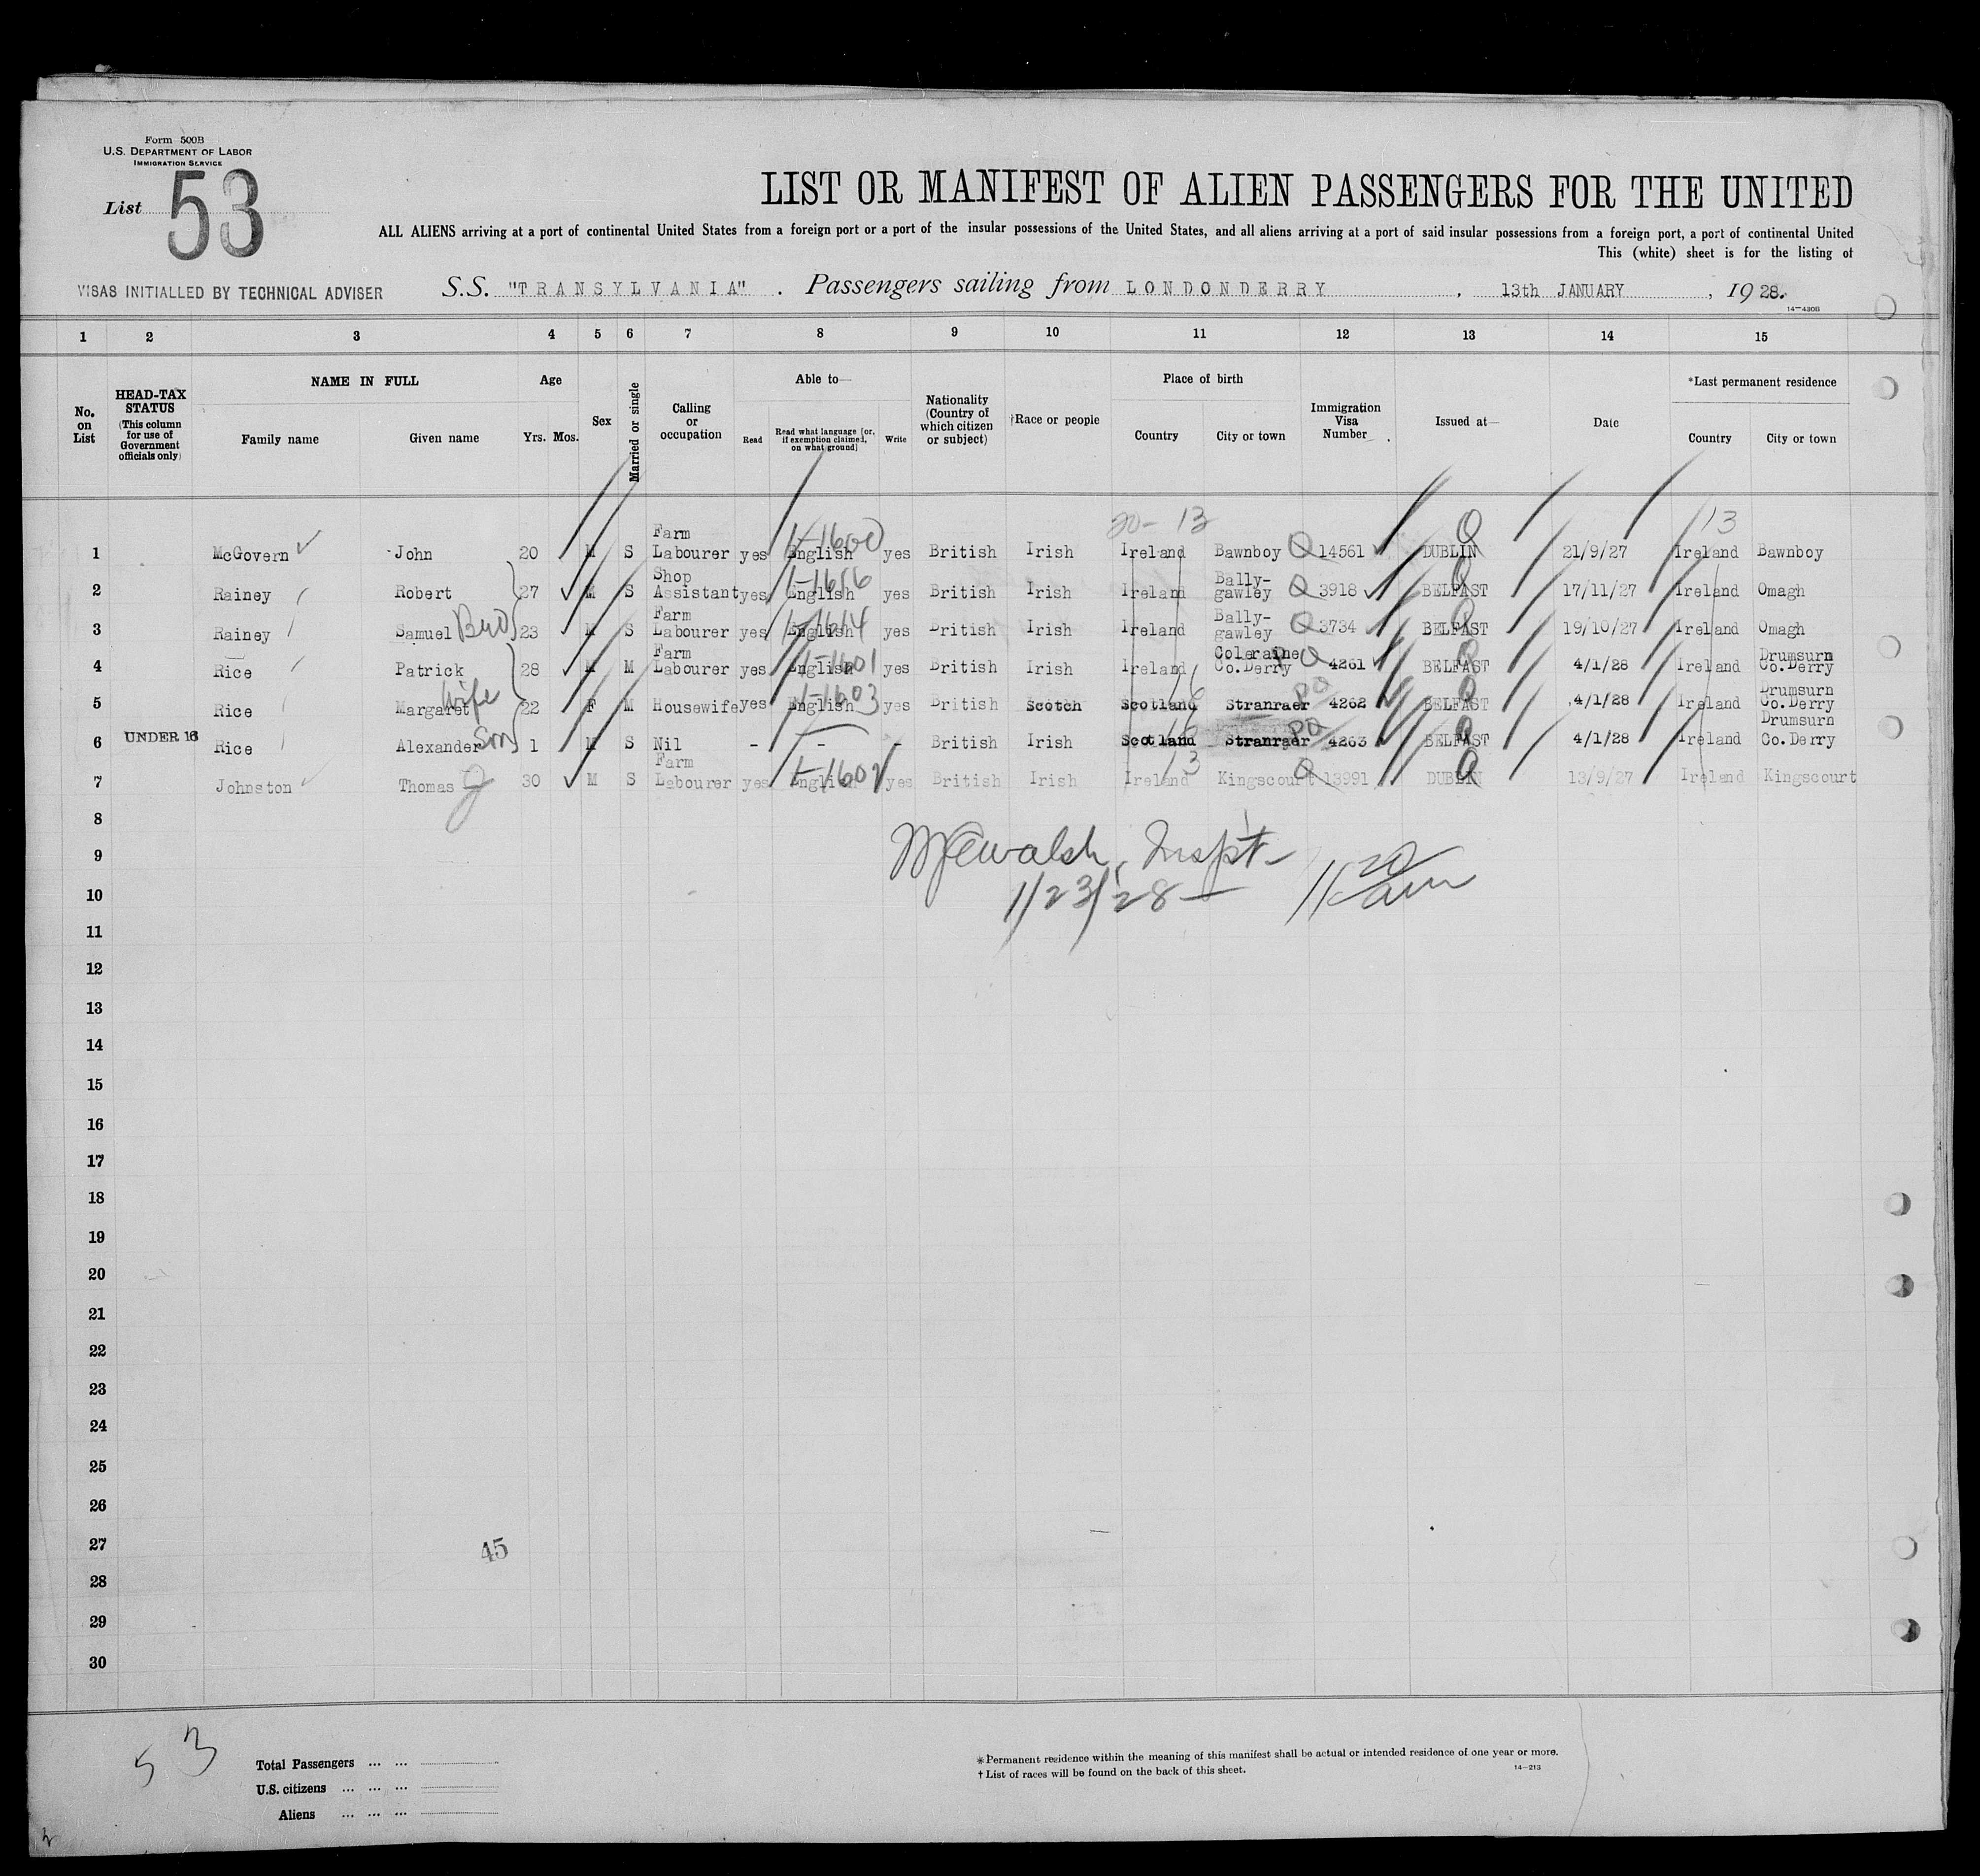 Form 500B
U.S. DEPARTMENT OF LABOR
IMMIGRATION SERVICE
List 53
LIST OR MANIFEST OF ALIEN PASSENGERS FOR THE UNITED
ALL ALIENS arriving at a port of continental United States from a foreign port or a port of the insular possessions of the United States, and all aliens arriving at a port of said insular possessions from a foreign port, a port of continental United
This (white) sheet is for the listing of
VISAS INITIALLED BY TECHNICAL ADVISER
S.S. "TRANSYLVANIA". Passengers sailing from LONDONDERRY, 13th JANUARY, 1928.
14—430B
1 2 3 4 5 6 7 8 9 10 11 12 13 14 15
No. on List
HEAD-TAX STATUS (This column for use of Government officials only)
NAME IN FULL
Family name Given name
Age
Yrs. Mos.
Sex
Married or single
Calling or occupation
Able to—
Read
Read what language [or, if exemption claimed, on what ground]
Write
Nationality (Country of which citizen or subject)
†Race or people
Place of birth
Country City or town
Immigration Visa Number
Issued at—
Date
*Last permanent residence
Country City or town
20- 13 13
1 McGovern John 20 M S Farm Labourer yes English 1-1600 yes British Irish Ireland Bawnboy Q 14561 DUBLIN 21/9/27 Ireland Bawnboy
2 Rainey Robert 27 M S Shop Assistant yes English 1-1616 yes British Irish Ireland Bally-gawley Q 3918 BELFAST 17/11/27 Ireland Omagh
3 Rainey Samuel Bro 23 M S Farm Labourer yes English 1-1614 yes British Irish Ireland Bally-gawley Q 3734 BELFAST 19/10/27 Ireland Omagh
4 Rice Patrick 28 M M Farm Labourer yes English 1-1601 yes British Irish Ireland Coleraine Co.Derry Q 4261 BELFAST 4/1/28 Ireland Drumsurn Co.Derry
5 Rice Margaret wife 22 F M Housewife yes English 1-1603 yes British Scotch Scotland Stranraer PQ 4262 BELFAST 4/1/28 Ireland Drumsurn Co.Derry
6 UNDER 16 Rice Alexander Son 1 M S Nil - - - British Irish Scotland Stranraer PQ 4263 BELFAST 4/1/28 Ireland Drumsurn Co.Derry
7 Johnston Thomas 30 M S Farm Labourer yes English 1-1602 yes British Irish Ireland 13 Kingscourt Q 13991 DUBLIN 13/9/27 Ireland Kingscourt
8
9
Walsh, Inspt-
10
1/23/28— 11 20 am
11
12
13
14
15
16
17
18
19
20
21
22
23
24
25
26
27 45
28
29
30
53
Total Passengers ... ...
U.S. citizens ... ... ...
Aliens ... ... ...
*Permanent residence within the meaning of this manifest shall be actual or intended residence of one year or more.
†List of races will be found on the back of this sheet.
14—213